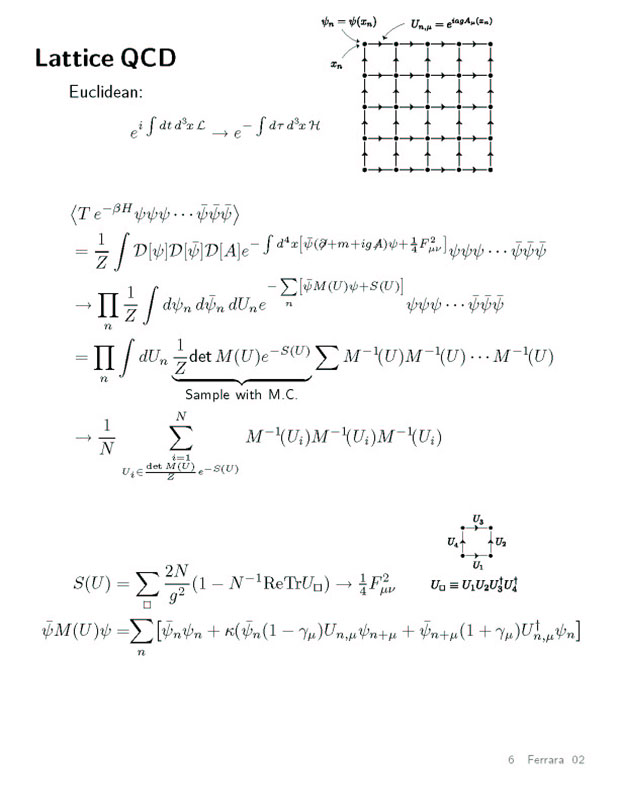 ψₙ = ψ(xₙ)
U_{n,μ} = e^{iagA_μ(xₙ)}
xₙ
Lattice QCD
Euclidean:
e^{i ∫ dt d³x ℒ} → e^{− ∫ dτ d³x ℋ}
⟨T e^{−βH} ψψψ ⋯ ψ̄ψ̄ψ̄⟩
= 1/Z ∫ 𝒟[ψ]𝒟[ψ̄]𝒟[A] e^{− ∫ d⁴x[ψ̄(∂̸+m+igA̸)ψ + ¼F²_{μν}]} ψψψ ⋯ ψ̄ψ̄ψ̄
→ ∏ₙ 1/Z ∫ dψₙ dψ̄ₙ dUₙ e^{− ∑ₙ [ψ̄M(U)ψ+S(U)]} ψψψ ⋯ ψ̄ψ̄ψ̄
= ∏ₙ ∫ dUₙ 1/Z det M(U)e^{−S(U)} ∑ M⁻¹(U)M⁻¹(U) ⋯ M⁻¹(U)
Sample with M.C.
→ 1/N ∑_{i=1, U_i∈ (det M(U)/Z) e^{−S(U)}}^{N} M⁻¹(U_i)M⁻¹(U_i)M⁻¹(U_i)
U₃
U₄ U₂
U₁
S(U) = ∑_□ 2N/g² (1 − N⁻¹ReTrU_□) → ¼F²_{μν}
U_□ ≡ U₁U₂U₃†U₄†
ψ̄M(U)ψ = ∑ₙ [ψ̄ₙψₙ + κ(ψ̄ₙ(1 − γ_μ)U_{n,μ}ψ_{n+μ} + ψ̄_{n+μ}(1 + γ_μ)U†_{n,μ}ψₙ]
6 Ferrara 02